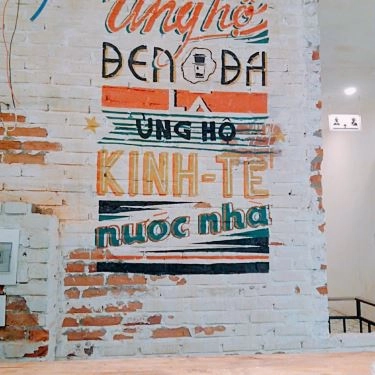 Ủng hộ
ĐEN ĐÁ
LÀ
ỦNG HỘ
KINH-TẾ
nước nhà